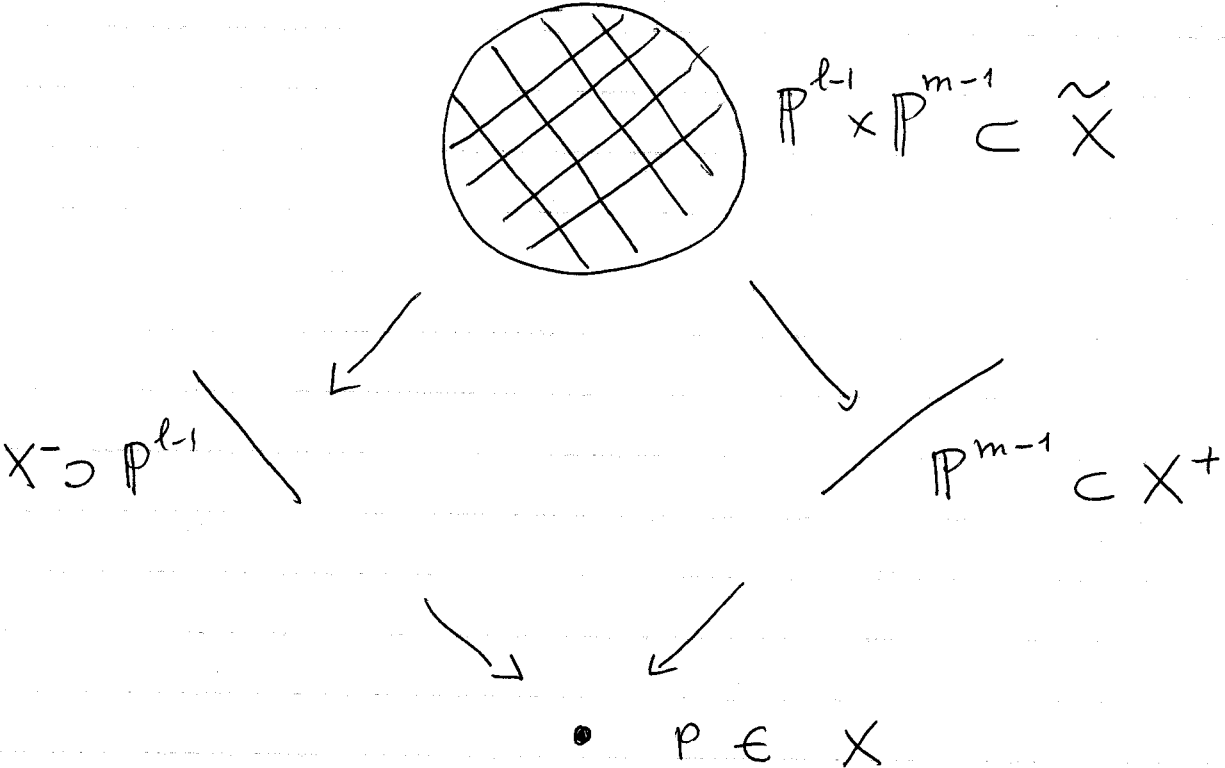 ℙ^{l-1} × ℙ^{m-1} ⊂ X̃
X⁻ ⊃ ℙ^{l-1}
ℙ^{m-1} ⊂ X⁺
P ∈ X